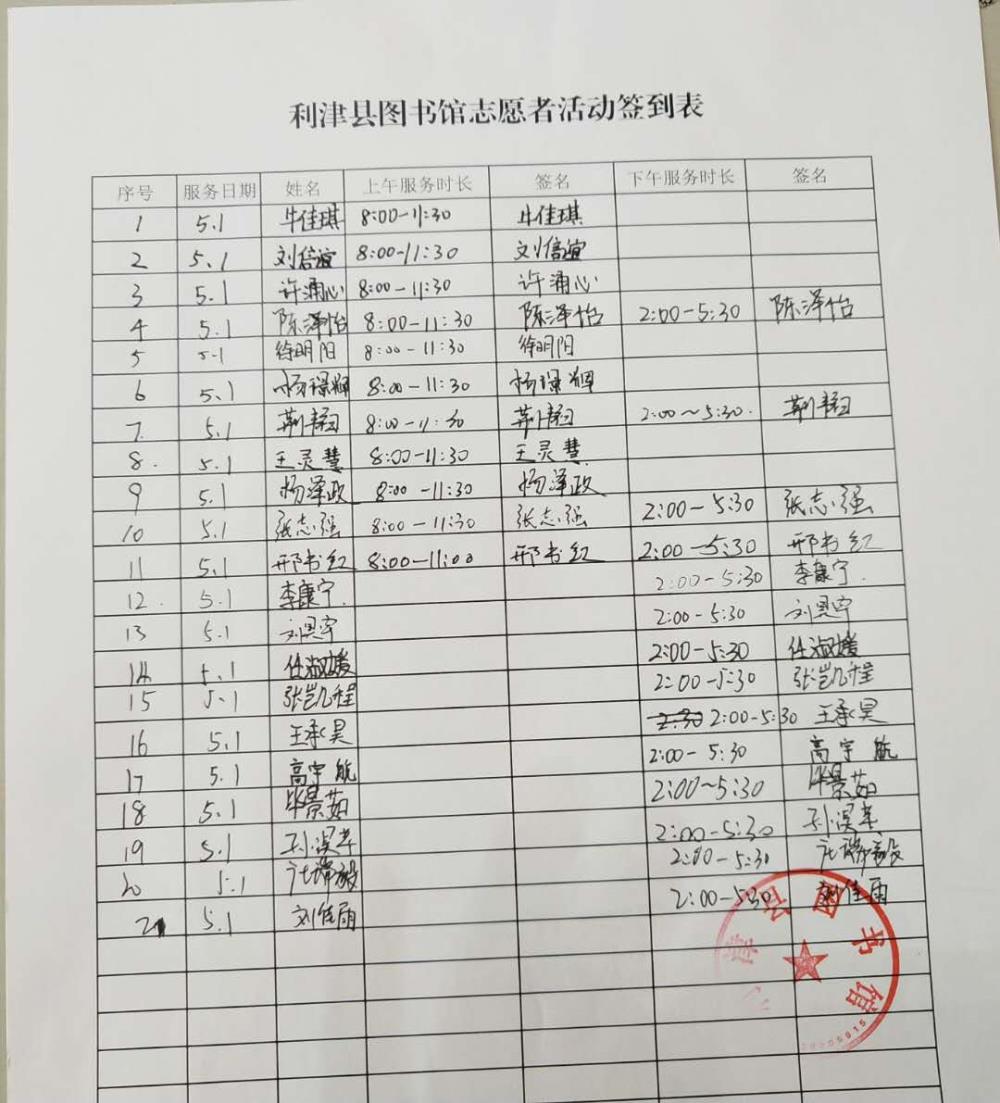 利津县图书馆志愿者活动签到表
序号 服务日期 姓名 上午服务时长 签名 下午服务时长 签名
1 5.1 牛佳琪 8:00-11:30 牛佳琪
2 5.1 刘信谊 8:00-11:30 刘信谊
3 5.1 许涌心 8:00-11:30 许涌心
4 5.1 陈泽怡 8:00-11:30 陈泽怡 2:00-5:30 陈泽怡
5 5.1 徐明阳 8:00-11:30 徐明阳
6 5.1 8:00-11:30
7. 5.1 8:00-11:30 2:00~5:30.
8. 5.1 王灵慧 8:00-11:30 王灵慧
9 5.1 杨泽政 8:00-11:30 杨泽政
10 5.1 张志强 8:00-11:30 张志强 2:00-5:30 张志强
11 5.1 邢书红 8:00-11:00 邢书红 2:00-5:30 邢书红
12. 5.1 李康宁. 2:00-5:30 李康宁.
13 5.1 2:00-5:30
14 5.1 任淑媛 2:00-5:30 任淑媛
15 5.1 张凯程 2:00-5:30 张凯程
16 5.1 王承昊 2:30 2:00-5:30 王承昊
17 5.1 高宇航 2:00-5:30 高宇航
18 5.1 毕景茹 2:00~5:30 毕景茹
19 5.1 2:00-5:30
20 5.1 2:00-5:30
21 5.1 刘佳雨 2:00-5:30 刘佳雨
津县图书馆